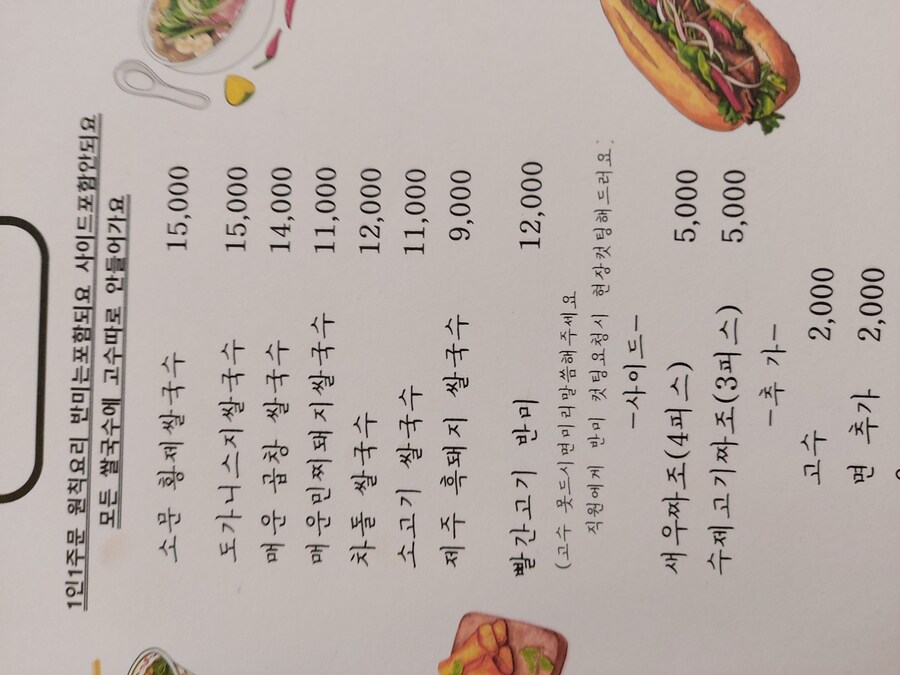 1인1주문 원칙요리 반미는포함되요 사이드포함안되요
모든 쌀국수에 고수따로 안들어가요
소문 황제쌀국수 15,000
도가니스지쌀국수 15,000
매운 곱창 쌀국수 14,000
매운민찌돼지쌀국수 11,000
차돌 쌀국수 12,000
소고기 쌀국수 11,000
제주 흑돼지 쌀국수 9,000
빨간고기 반미 12,000
(고수 못드시면미리말씀해주세요
직원에게 반미 컷팅요청시 현장컷팅해드려요:
-사이드-
새우짜조(4피스) 5,000
수제고기짜조(3피스) 5,000
-추 가-
고수 2,000
면 추가 2,000